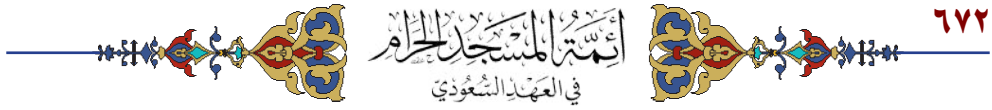 ٦٧٢
أَئِمَّةُ المَسْجِدِ الحَرَامِ
فِي العَهْدِ السُّعُودِيّ